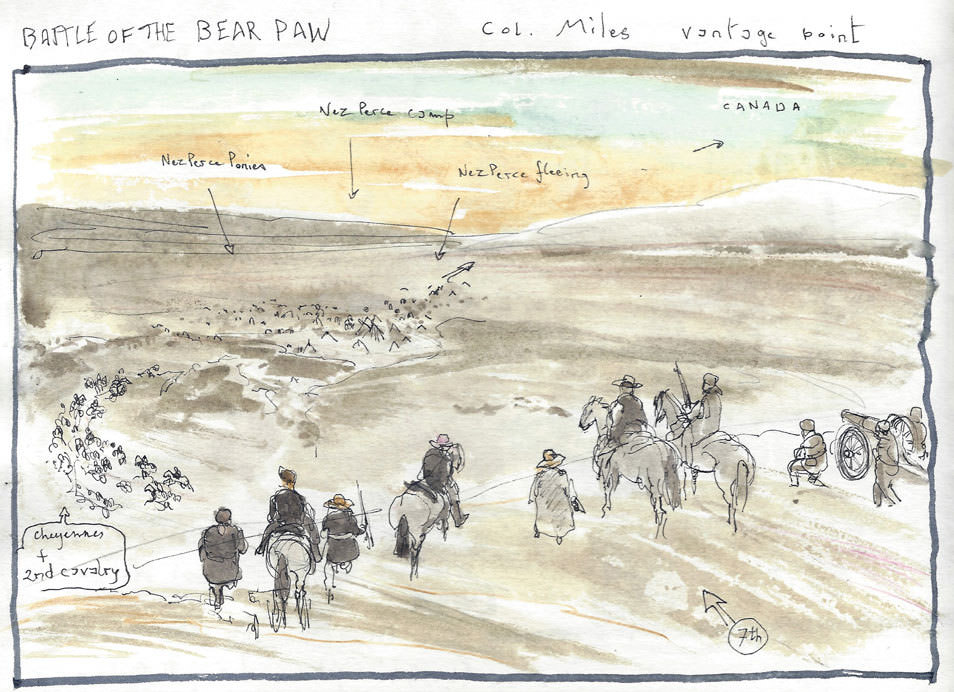 BATTLE OF THE BEAR PAW
Col. Miles vantage point
CANADA
Nez Perce camp
Nez Perce Ponies
Nez Perce fleeing
Cheyennes
+
2nd cavalry
7th